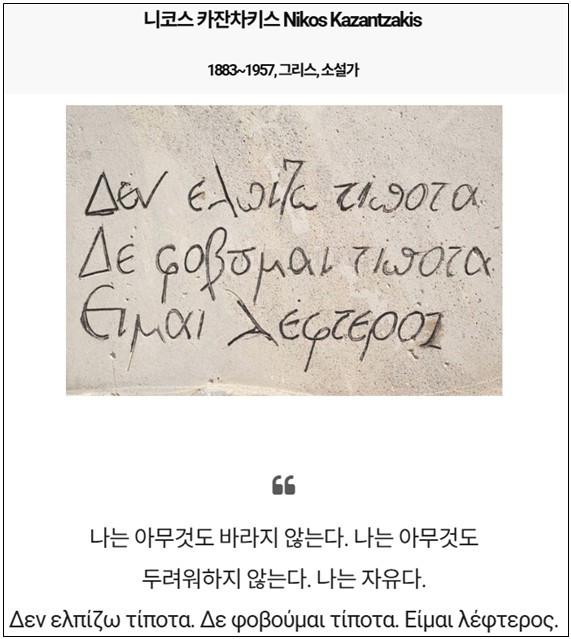 니코스 카잔차키스 Nikos Kazantzakis
1883~1957, 그리스, 소설가
Δεν ελπιζω τιποτα
Δε φοβυμαι τιποτα
Ειμαι λεφτερος
❝
나는 아무것도 바라지 않는다. 나는 아무것도
두려워하지 않는다. 나는 자유다.
Δεν ελπίζω τίποτα. Δε φοβούμαι τίποτα. Είμαι λέφτερος.